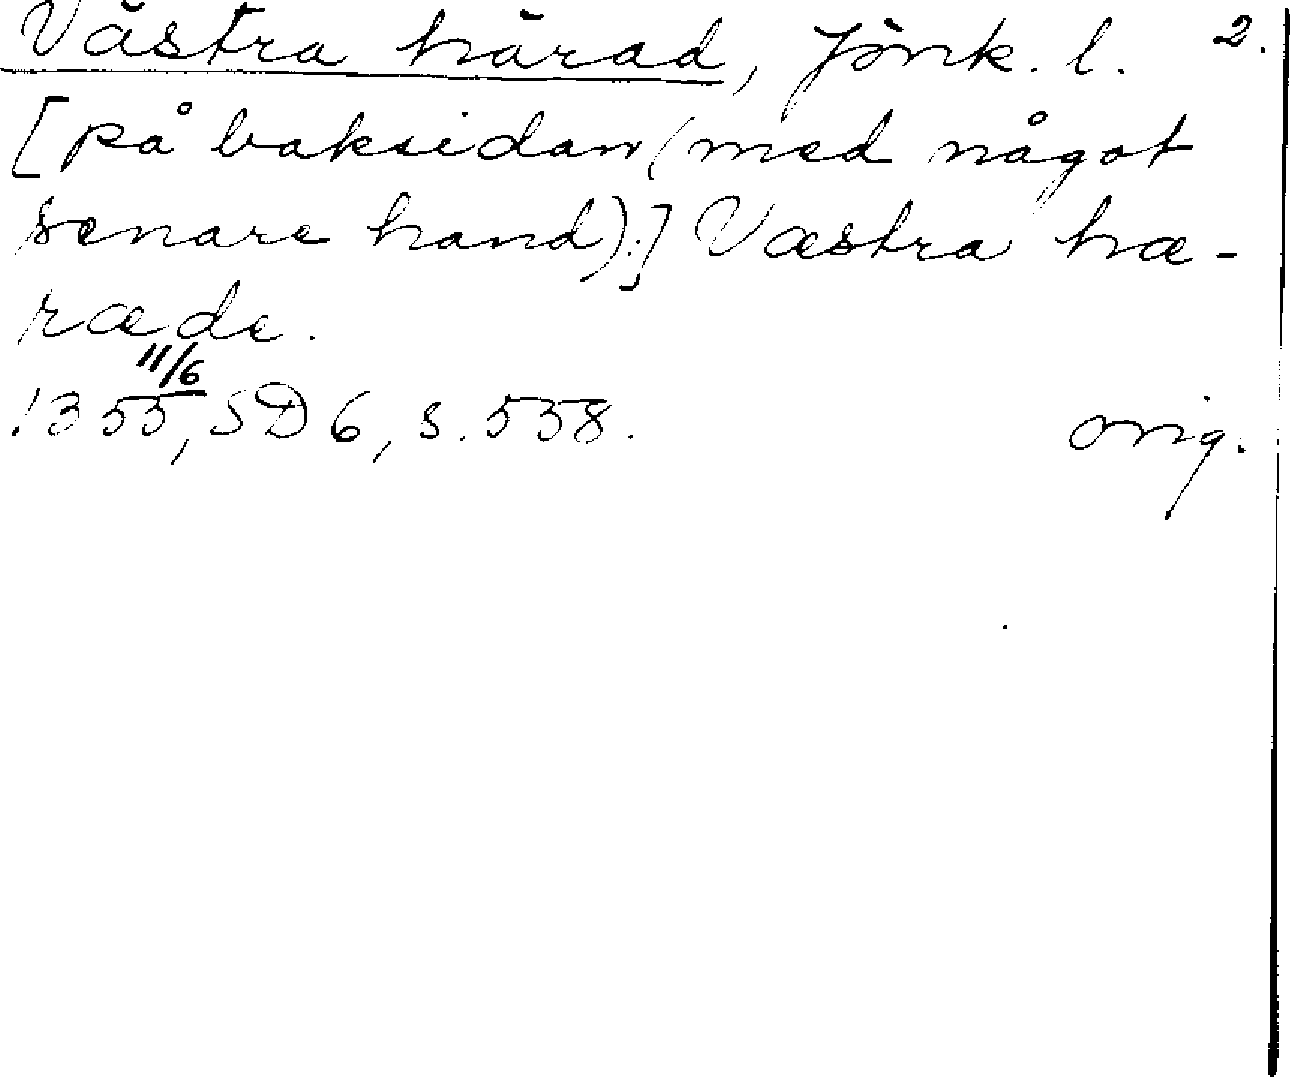 Västra härad, Jönk. l. 2.
[på baksidan (med något
senare hand):] Væstra hæ-
ræde.
11/6
1355, SD 6, s. 558. orig.